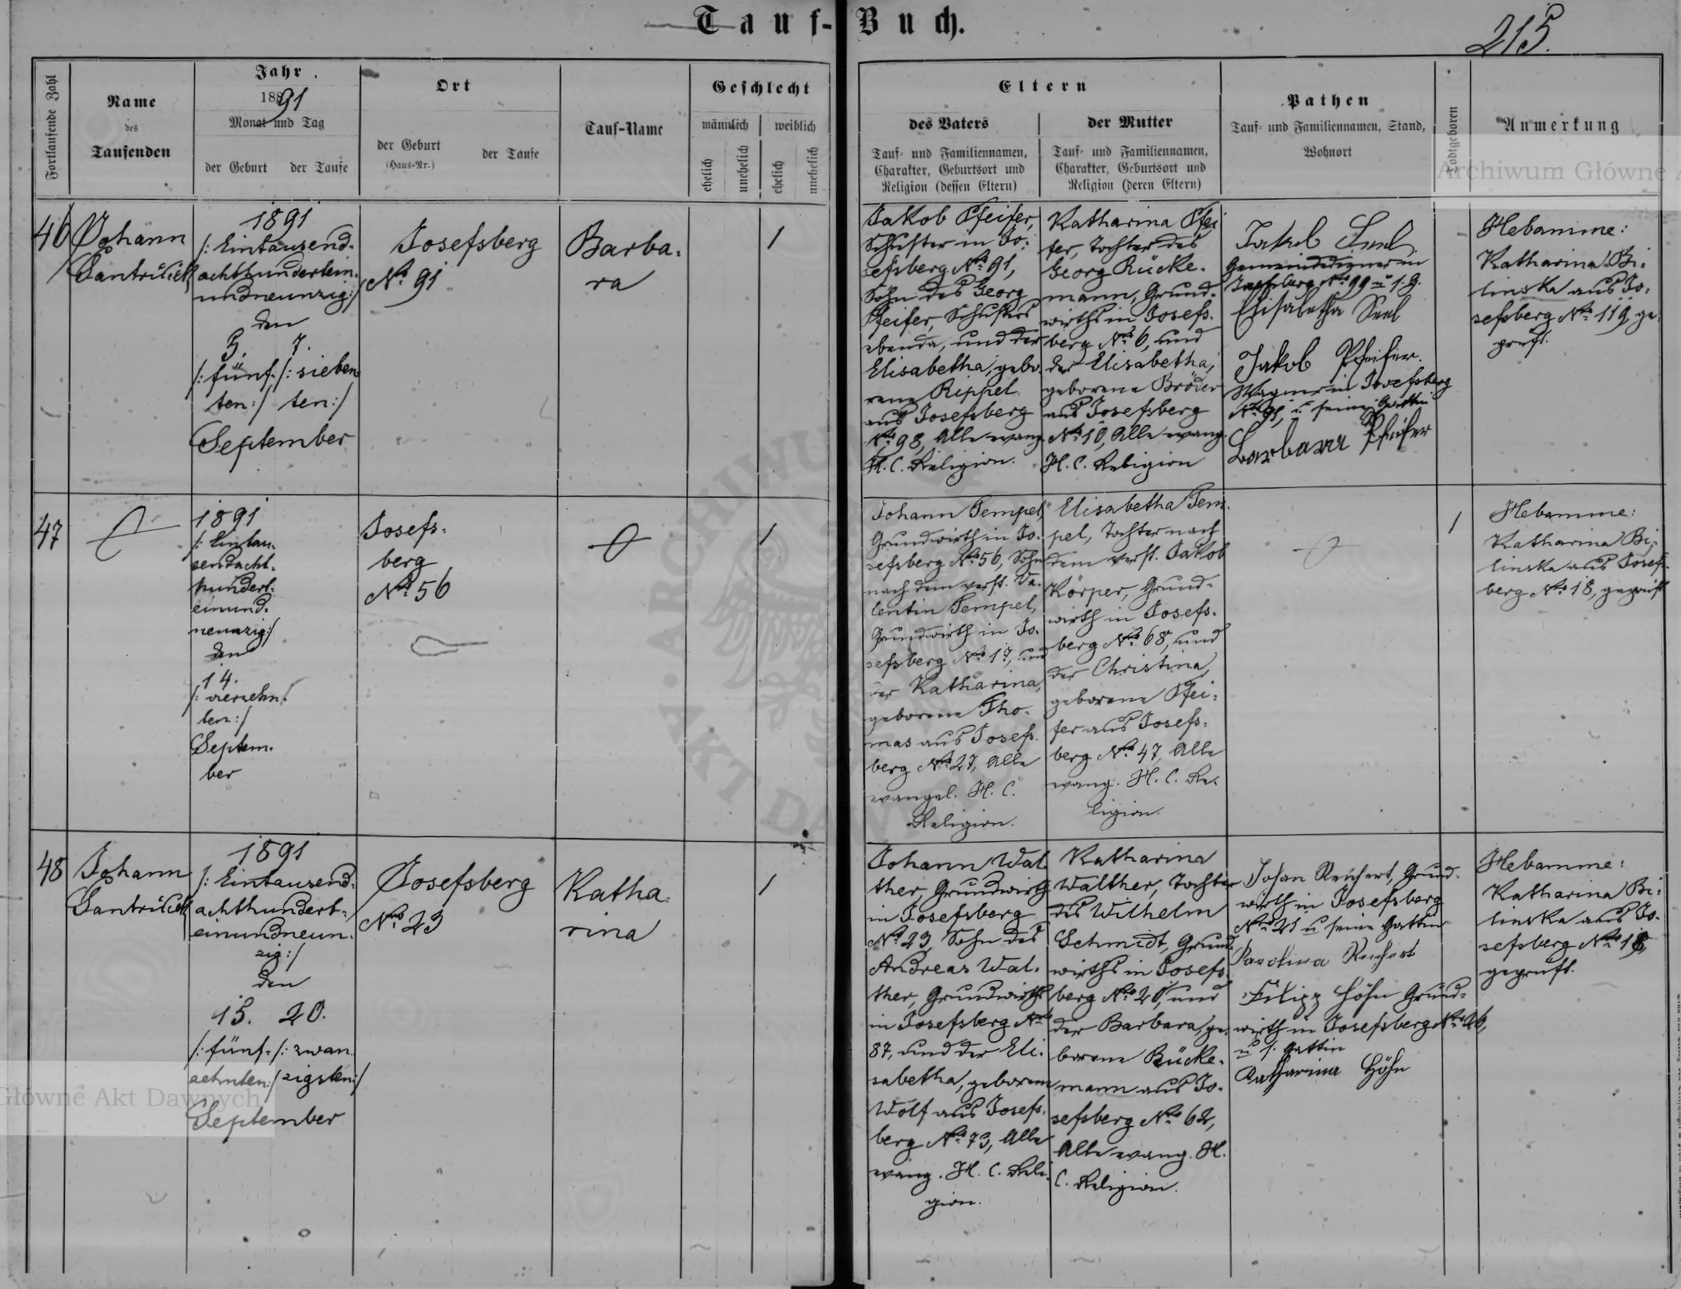 Tauf-Buch.
215.
Fortlaufende Zahl
Name
des
Taufenden
Jahr
1891
Monat und Tag
der Geburt
der Taufe
Ort
der Geburt
(Haus-Nr.)
der Taufe
Tauf-Name
Geschlecht
männlich
weiblich
ehelich
unehelich
ehelich
unehelich
Eltern
des Vaters
Tauf- und Familiennamen,
Charakter, Geburtsort und
Religion (dessen Eltern)
der Mutter
Tauf- und Familiennamen,
Charakter, Geburtsort und
Religion (deren Eltern)
Pathen
Tauf- und Familiennamen, Stand,
Wohnort
Todtgeboren
Anmerkung
46
Johann
1891
/: Eintausend-
achthundertein-
undneunzig :/
den
5. 7.
/: fünf- /: sieben
ten :/ ten :/
September
Josefsberg
No 91
Barba-
ra
1
Jakob Pfeifer,
Schuster in Jo-
sefsberg No 91,
Sohn des Georg
Pfeifer, Schusters
ebenda, und der
Elisabetha, gebo-
rene Rippel
aus Josefsberg
No 98, Alle evang.
H. C. Religion.
Katharina Pfei-
fer, Tochter des
Georg Rücke-
mann, Grund-
wirths in Josefs-
berg No 6, und
der Elisabetha,
geborene Bröder
aus Josefsberg
No 10, Alle evang.
H. C. Religion
Jakob
in
Josefsberg No 99
Elisabetha
Jakob Pfeifer.
Wagner in Josefsberg
No 91, u. seine Gattin
Barbara Pfeifer
Hebamme:
Katharina Bi-
linska aus Jo-
sefsberg No 119, ge-
prüft.
47
1891
/: Eintau-
sendacht-
hundert-
einund-
neunzig :/
den
14.
/: vierzehn-
ten :/
Septem-
ber
Josefs-
berg
No 56
1
Johann Tempel,
Grundwirth in Jo-
sefsberg No 56, Sohn
nach dem verst. Va-
lentin Tempel,
Grundwirth in Jo-
sefsberg No 17, und
der Katharina,
geborene Tho-
mas aus Josefs-
berg No 27, Alle
evangel. H. C.
Religion.
Elisabetha Tem-
pel, Tochter nach
dem verst. Jakob
Körper, Grund-
wirth in Josefs-
berg No 68, und
der Christina,
geborene Pfei-
fer aus Josefs-
berg No 47, Alle
evang. H. C. Re-
ligion.
1
Hebamme:
Katharina Bi-
linska aus Josefs-
berg No 18, geprüft
48
Johann
1891
/: Eintausend-
achthundert-
einundneun-
zig :/
den
15. 20.
/: fünf- /: zwan-
zehnten :/ zigsten :/
September
Josefsberg
No 23
Katha-
rina
1
Johann Wal-
ther, Grundwirth
in Josefsberg
No 23, Sohn des
Andreas Wal-
ther, Grundwirth
in Josefsberg No
87, und der Eli-
sabetha, geborene
Wolf aus Josefs-
berg No 73, Alle
evang. H. C. Reli-
gion.
Katharina
Walther, Tochter
des Wilhelm
Schmidt, Grund-
wirths in Josefs-
berg No 20, und
der Barbara, ge-
borene Rücke-
mann aus Jo-
sefsberg No 62,
Alle evang. H.
C. Religion.
Johan Reichert, Grund-
wirth in Josefsberg
No 21 u seine Gattin
Karolina Reichert
Filipp Höhn Grund-
wirth in Josefsberg No 26,
u s. Gattin
Katharina Höhn
Hebamme:
Katharina Bi-
linska aus Jo-
sefsberg No 18,
geprüft.
Archiwum Główne A
Główne Akt Dawnych